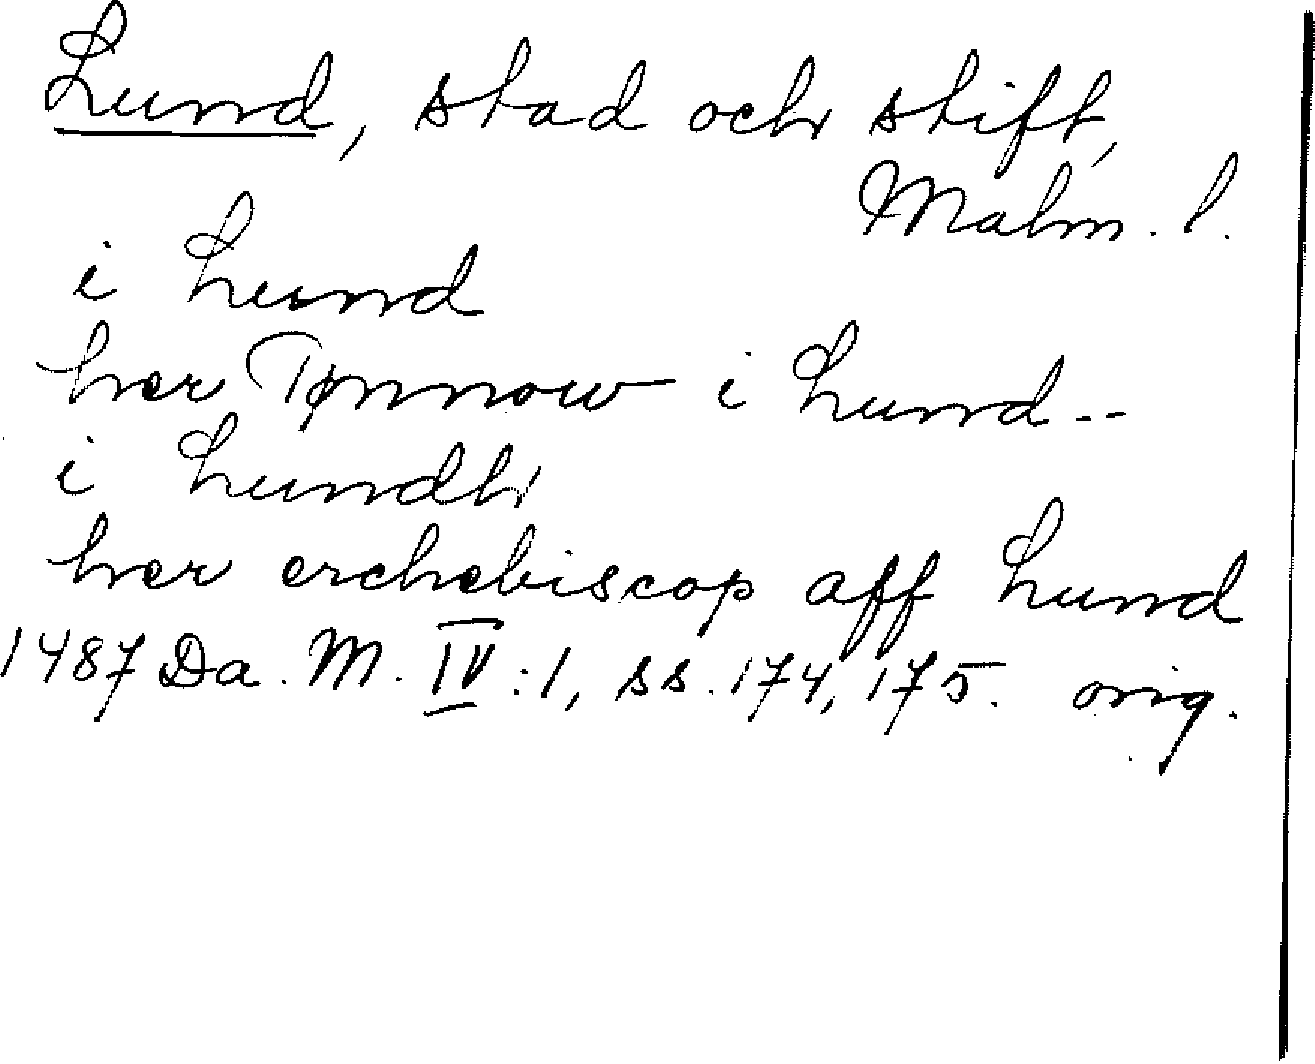 Lund, stad och stift,
Malm. l.
i Lund
her Tønnow i Lund--
i Lundh
her erchebiscop aff Lund
1487 Da. M. IV:1, ss. 174, 175. orig.